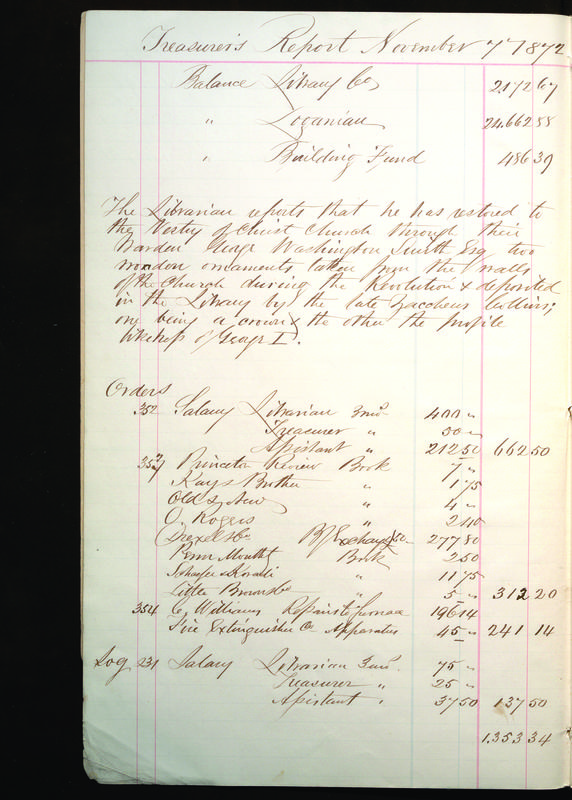 Treasurer's Report November 7" 1872
Balance Library Co, 2172 67
" Loganian 24.662 88
" Building Fund 486 39
The Librarian reports that he has restored to
the Vestry of Christ Church through their
Warden George Washington Smith Esq two
wooden ornaments taken from the walls
of the Church during the Revolution & deposited
in the Library by the late Zaccheus Collins;
one being a crown & the other the profile
likeness of George I.
Orders
352 Salary Librarian 3 mos 400 "
Treasurer " 50 "
Assistant " 212 50 662 50
353 Princeton Review Book 7 "
Kay & Brother " 1 75
Old & New " 4 "
O. Rogers " 2 40
Drexel & Co B/Exchange £50 277 80
Penn Monthly Book 2 50
Schaefer & Koradi " 11 75
Little Brown & Co " 5 " 312 20
354 C. Williams Repairs to furnace 196 14
Fire Extinguisher Co Apparatus 45 " 241 14
Log 231 Salary Librarian 3 mos. 75 "
Treasurer " 25 "
Assistant " 37 50 137 50
1.353 34